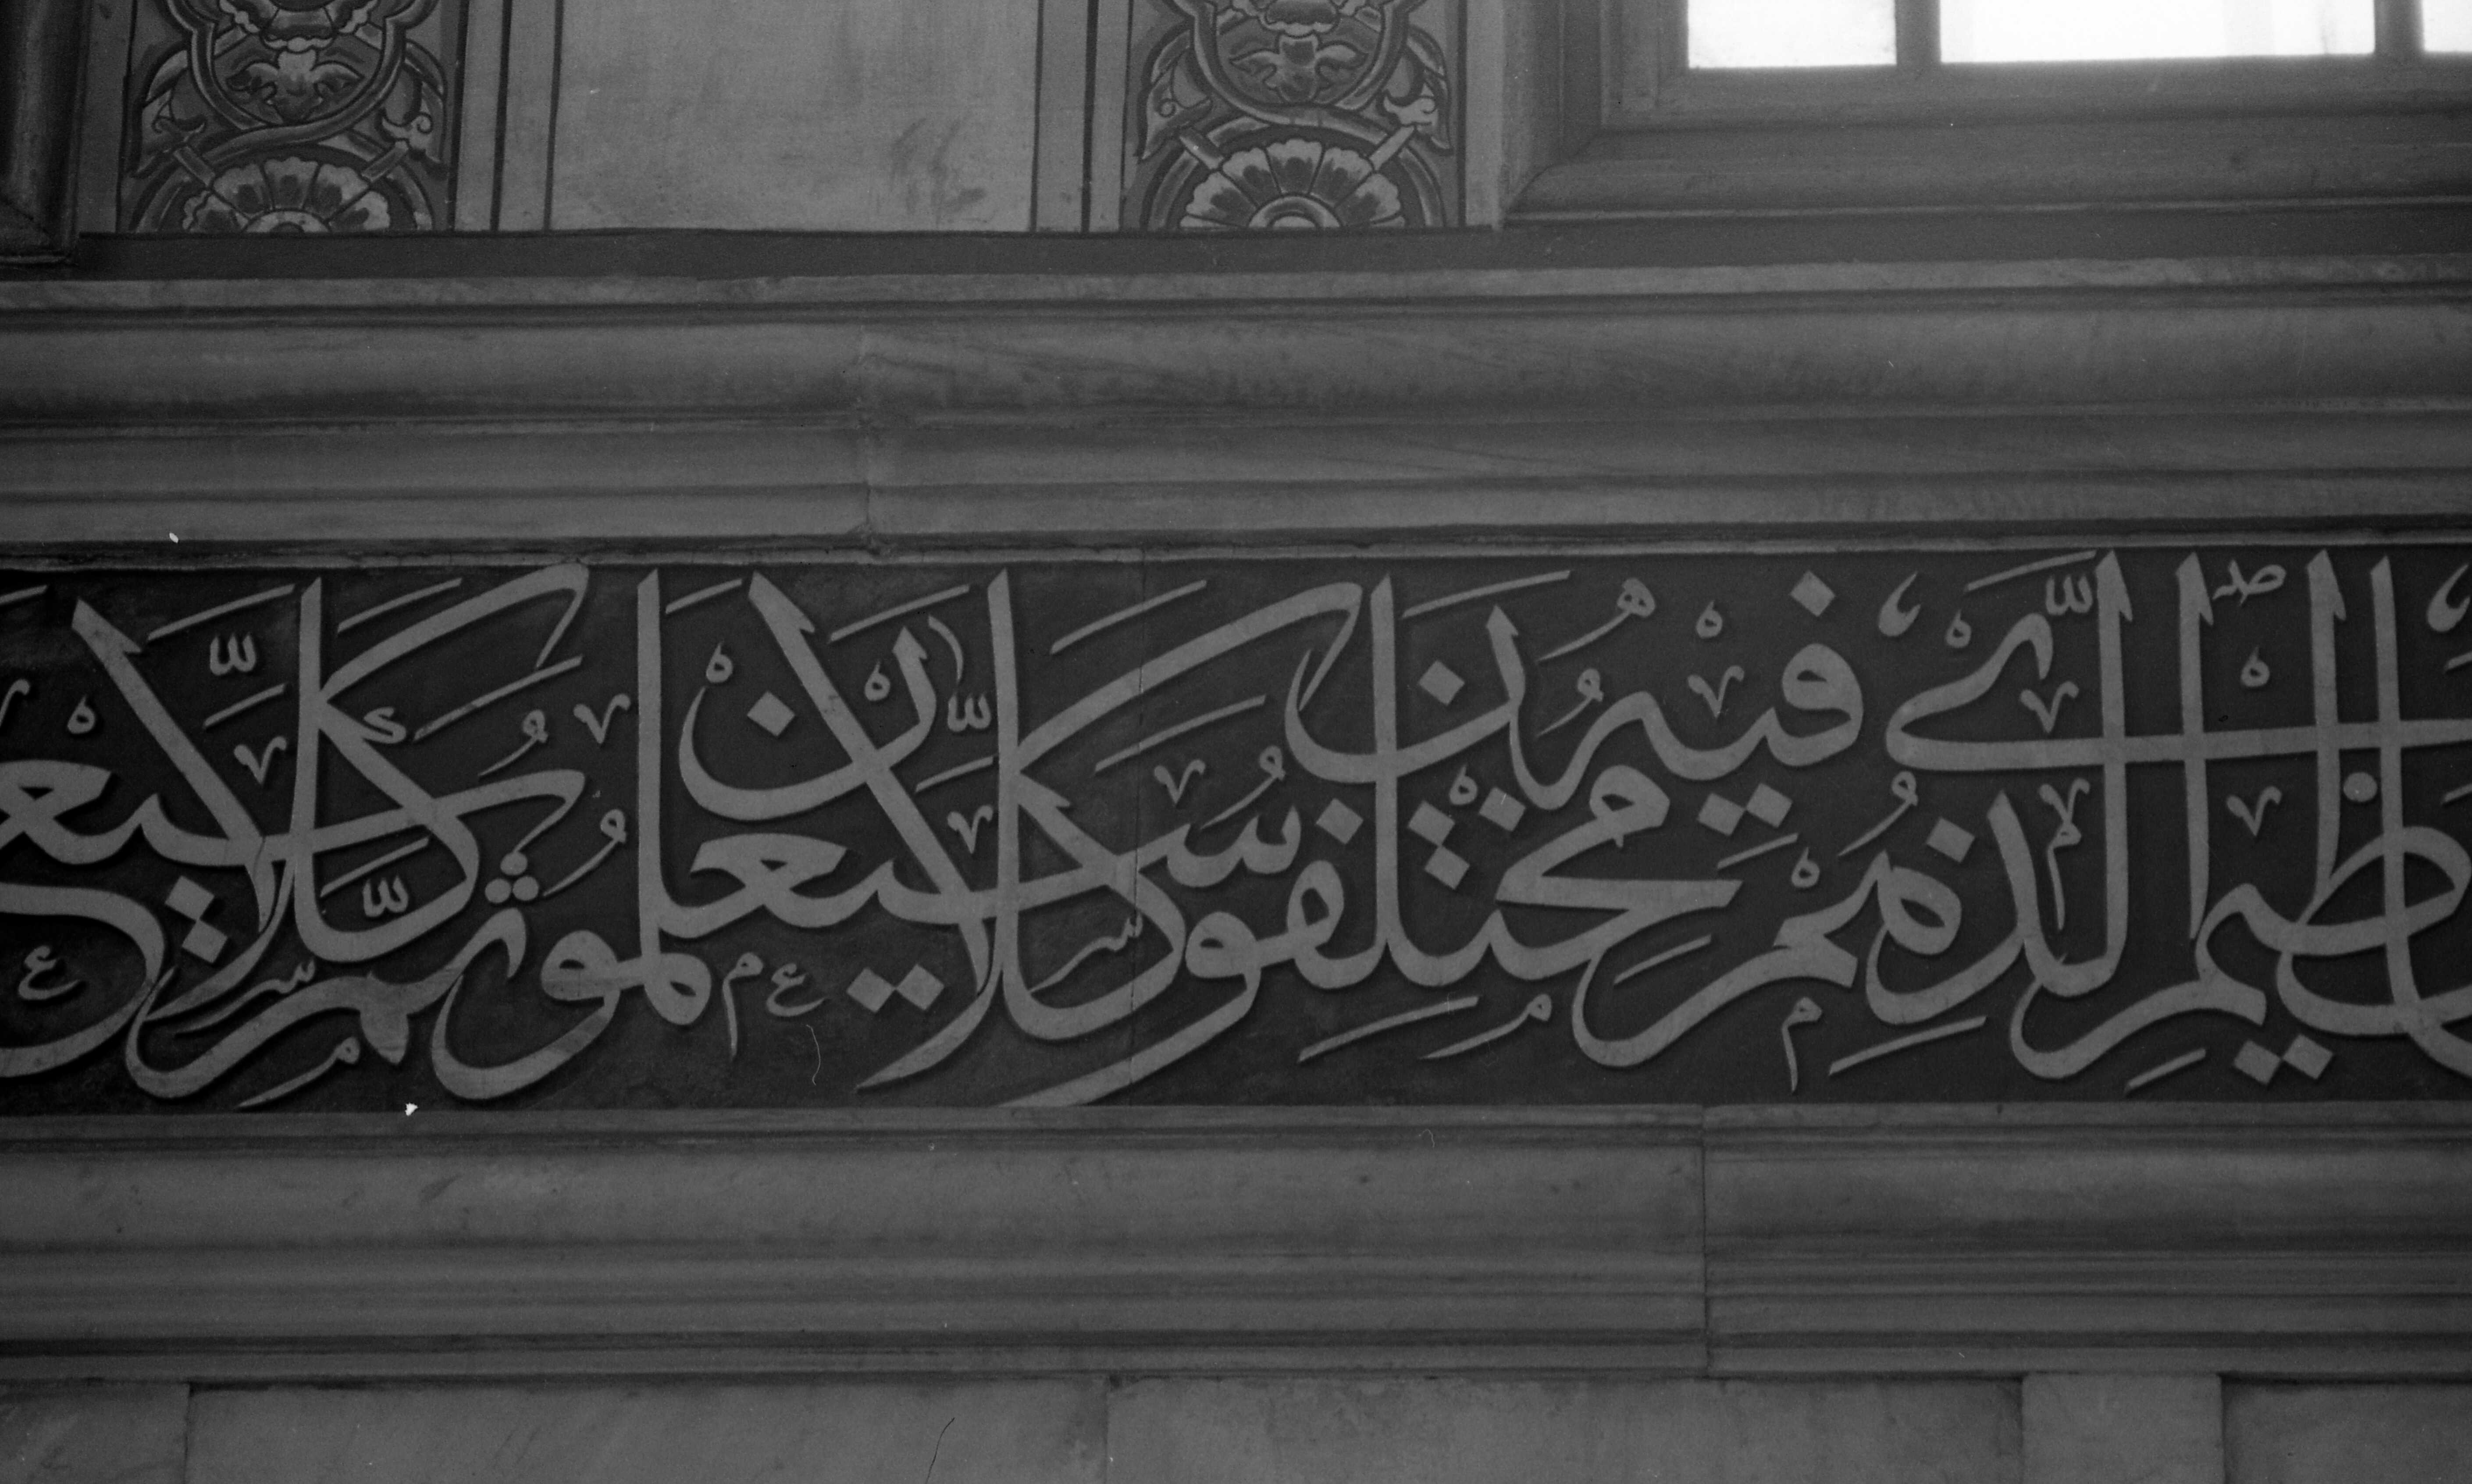 العظيم الذي هم فيه مختلفون كلا سيعلمون ثم كلا سيع